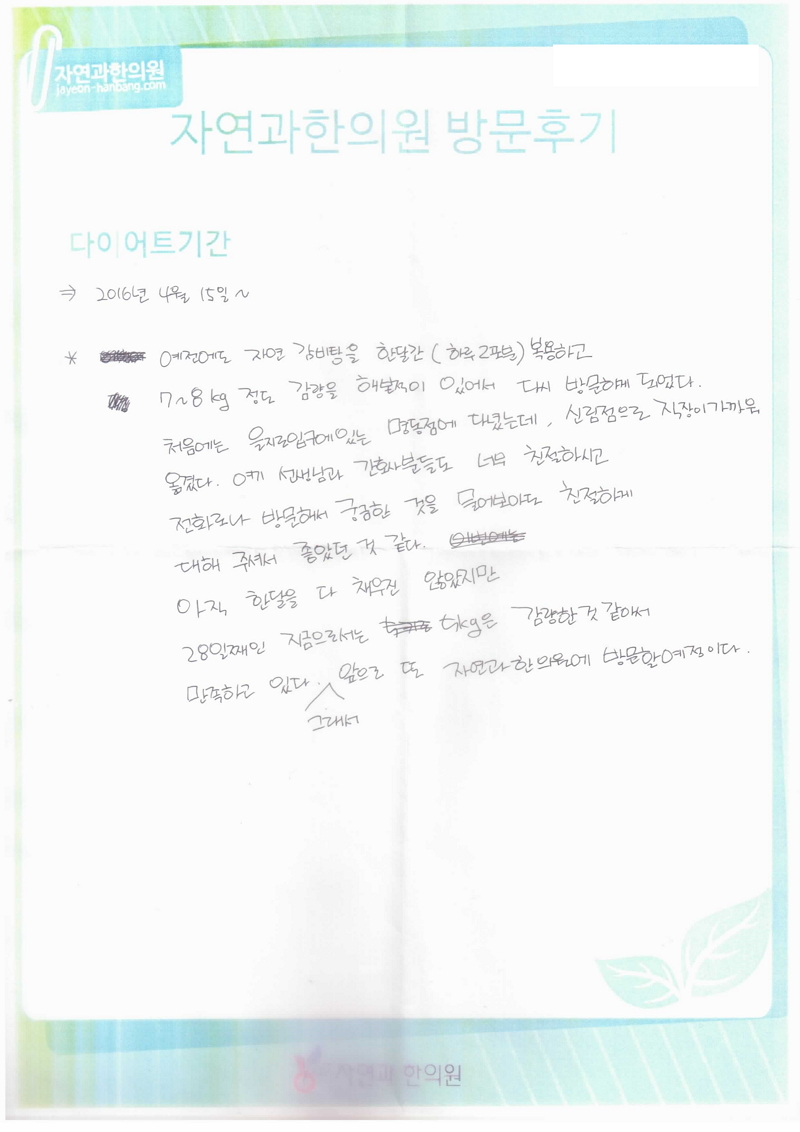 자연과한의원
jayeon-hanbang.com
자연과한의원 방문후기
다이어트기간
⇒ 2016년 4월 15일 ~
* 예전에도 자연 감비탕을 한달간 (하루 2포씩) 복용하고
7~8kg 정도 감량을 해본적이 있어서 다시 방문하게 되었다.
처음에는 을지로입구에있는 명동점에 다녔는데, 신림점으로 직장이가까워
옮겼다. 여기 선생님과 간호사분들도 너무 친절하시고
전화로나 방문해서 궁금한 것을 물어보아도 친절하게
대해 주셔서 좋았던 것 같다.
아직 한달을 다 채우진 않았지만
28일째인 지금으로서는 5kg은 감량한것 같아서
만족하고 있다. 앞으로 또 자연과한의원에 방문할예정이다.
그래서
자연과한의원